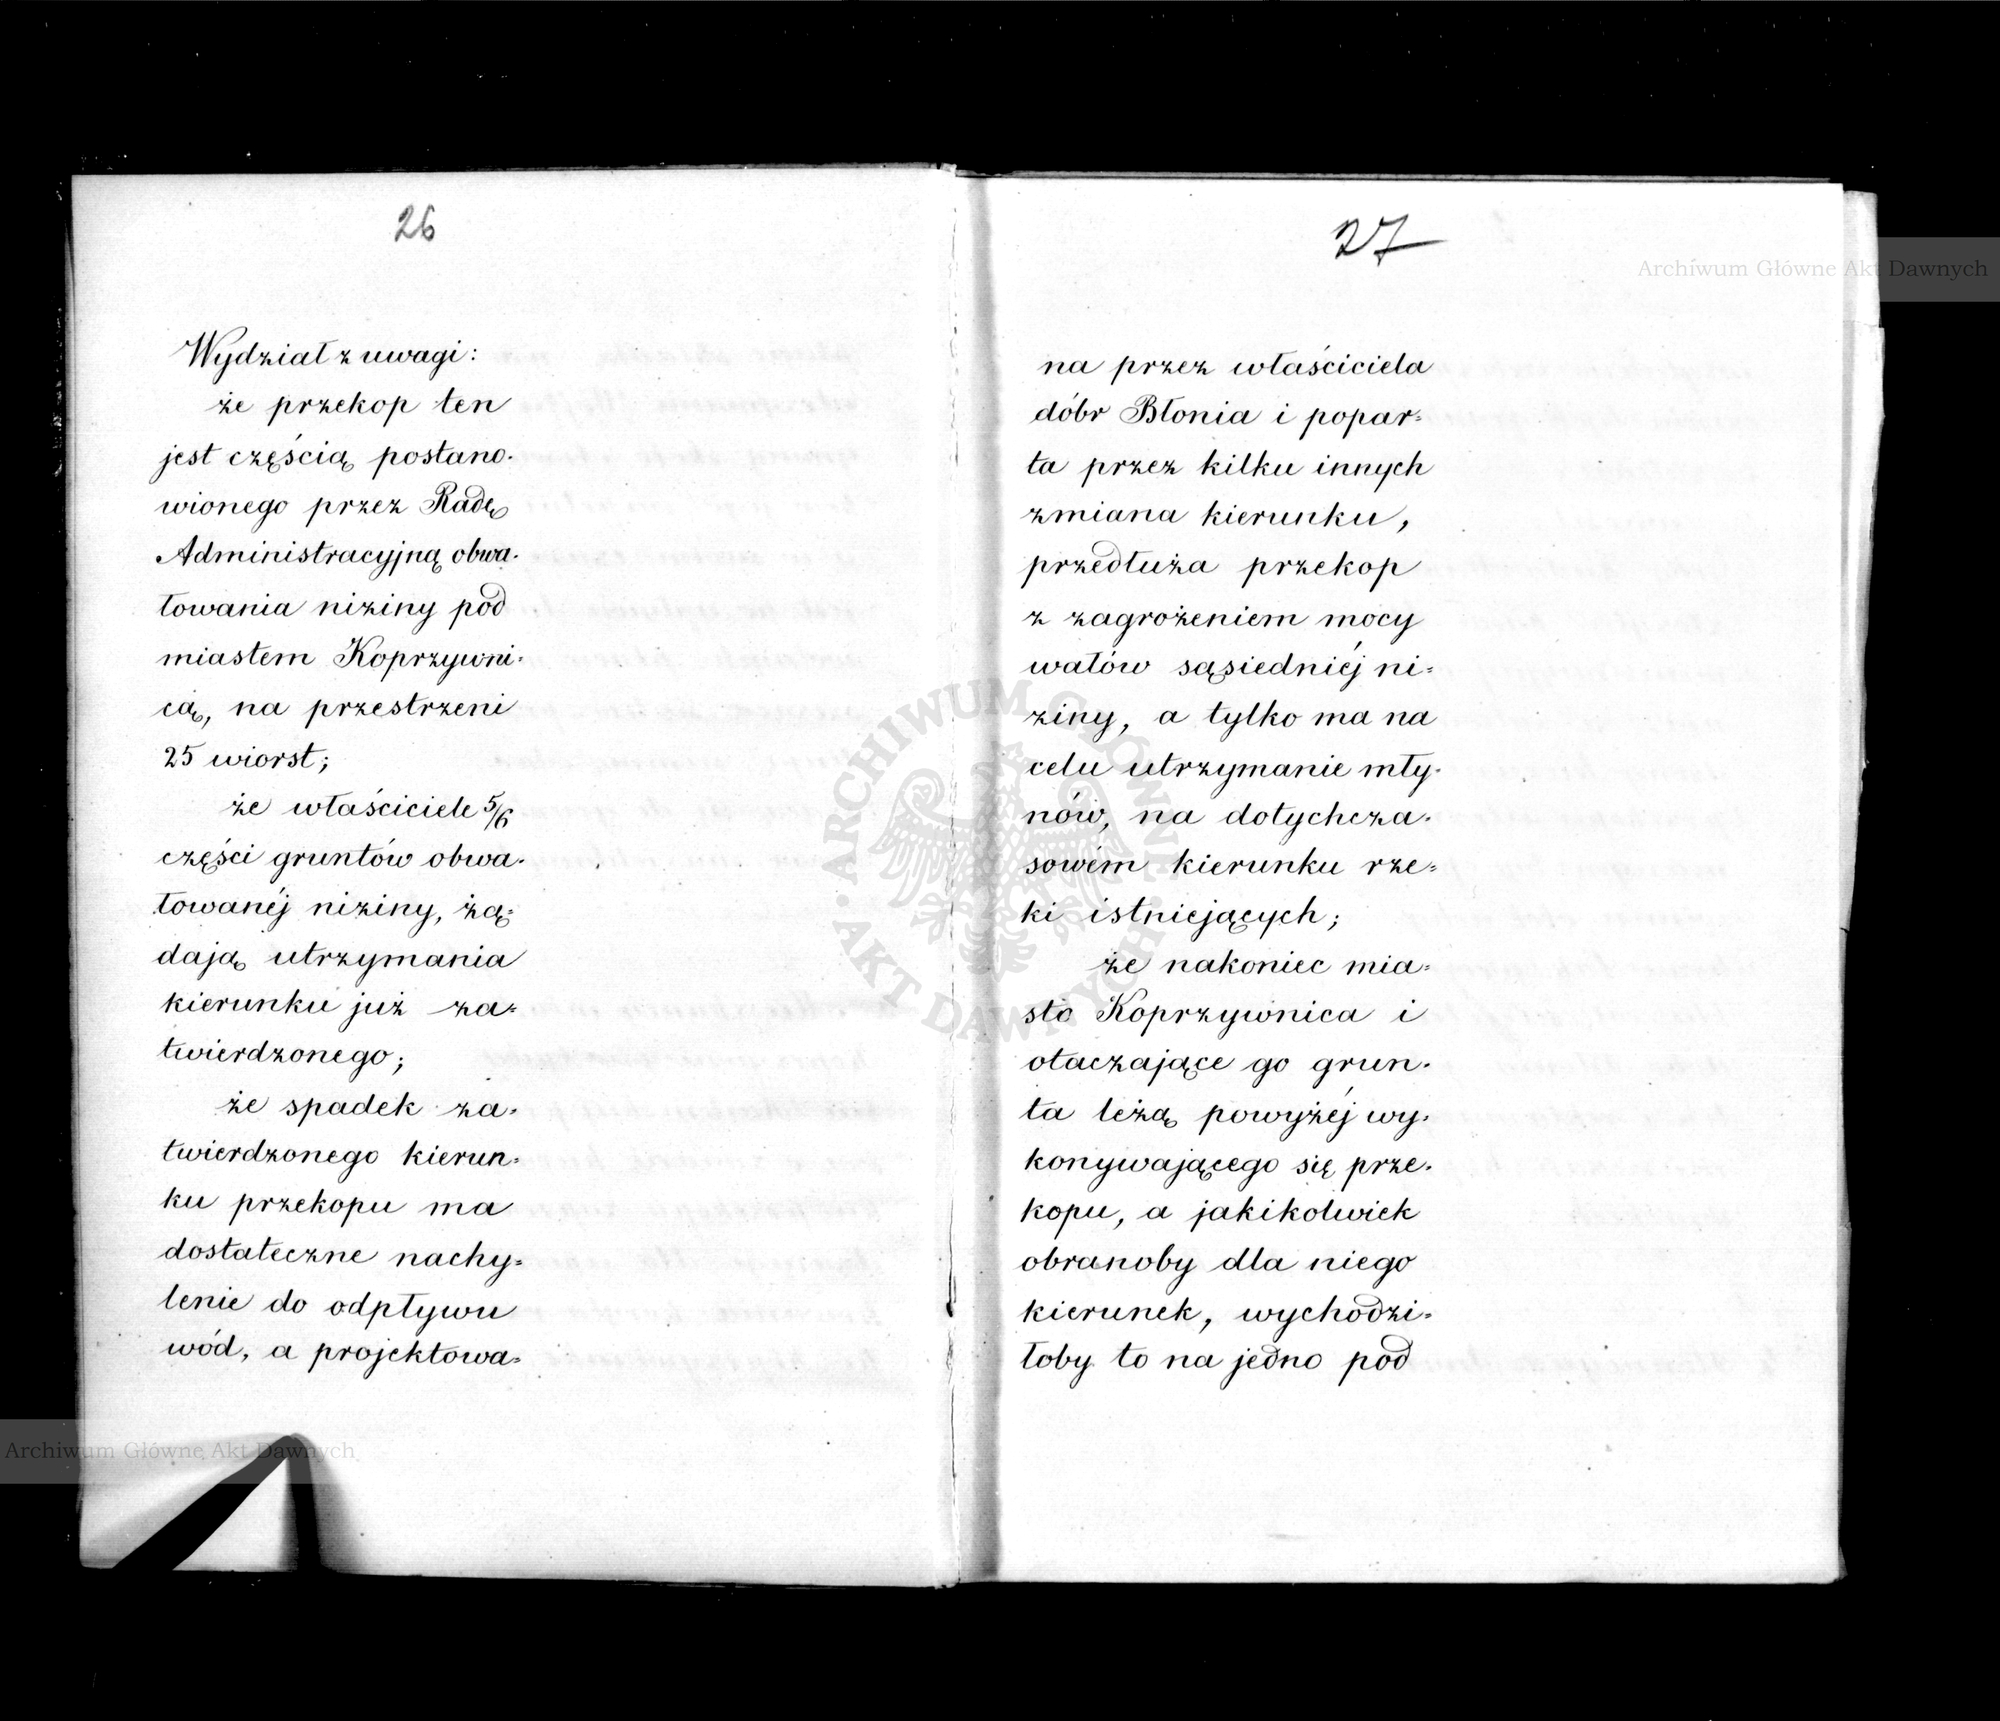 26
Wydział z uwagi:
że przekop ten
jest częścią postano-
wionego przez Radę
Administracyjną obwa-
łowania niziny pod
miastem Koprzywni-
cą, na przestrzeni
25 wiorst;
że właściciele 5/6
części gruntów obwa-
łowanéj niziny, żą-
dają utrzymania
kierunku już za-
twierdzonego;
że spadek za-
twierdzonego kierun-
ku przekopu ma
dostateczne nachy-
lenie do odpływu
wód, a projektowa-
27
na przez właściciela
dóbr Błonia i popar-
ta przez kilku innych
zmiana kierunku,
przedłuża przekop
z zagrożeniem mocy
wałów sąsiedniéj ni-
ziny, a tylko ma na
celu utrzymanie mły-
nów, na dotychcza-
sowém kierunku rze-
ki istniejących;
że nakoniec mia-
sto Koprzywnica i
otaczające go grun-
ta leżą powyżéj wy-
konywającego się prze-
kopu, a jakikolwiek
obranoby dla niego
kierunek, wychodzi-
łoby to na jedno pod
Archiwum Główne Akt Dawnych
Archiwum Główne Akt Dawnych
ARCHIWUM GŁÓWNE AKT DAWNYCH